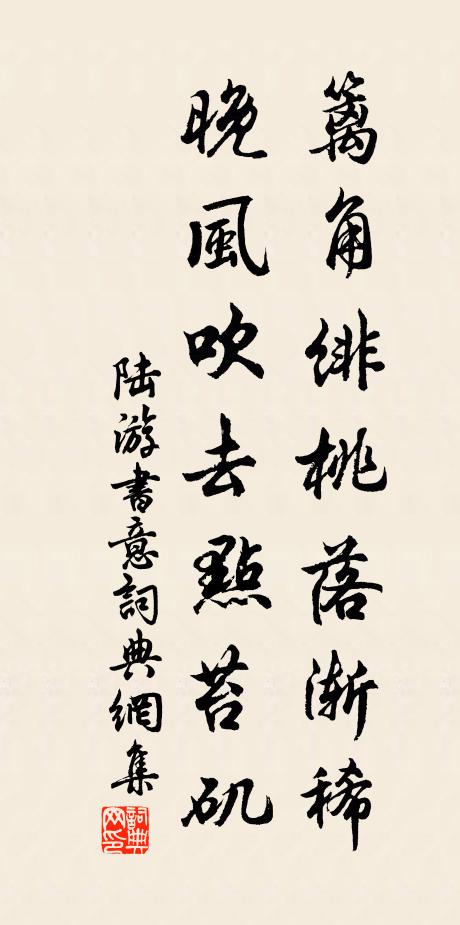 籬角緋桃落漸稀
晚風吹去點苔矶
陆游書意詞典網集
詞典网印